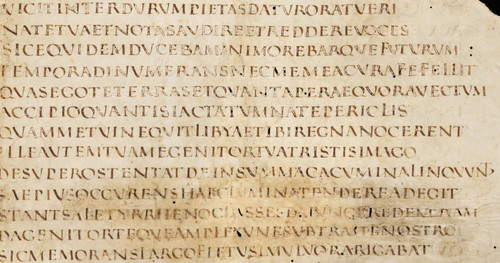 VICITINTERDURUMPIETASDATURORATUERI
NATETUAETNOTASAUDIREETREDDEREVOCES
SICEQUIDEMDUCEBAMANIMOREBARQUEFUTURUM
TEMPORADINUMERANSNECMEMEACURAFEFELLIT
QUASEGOTETERRASETQUANTAPERAEQUORAVECTUM
ACCIPIOQUANTISIACTATUMNATEPERICLIS
QUAMMETUINEQUITLIBYAETIBIREGNANOCERENT
ILLEAUTEMTUAMEGENITORTUATRISTISIMAGO
DESUPEROSTENTATDEINSUMMACACUMINALINQUUNT
SAEPIUSOCCURENSHAECLIMINATENDEREADEGIT
STANTSALETYRRHENOCLASSESDAIUNGEREDEXTRAM
DAGENITORTEQUEAMPLEXUNESUBTRAHENOSTRO
SICMEMORANSLARGOFLETUSIMULVORARIGABAT